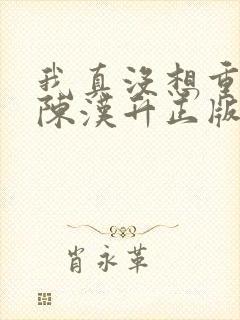 我真没想重
陳漢升正版
肖永革